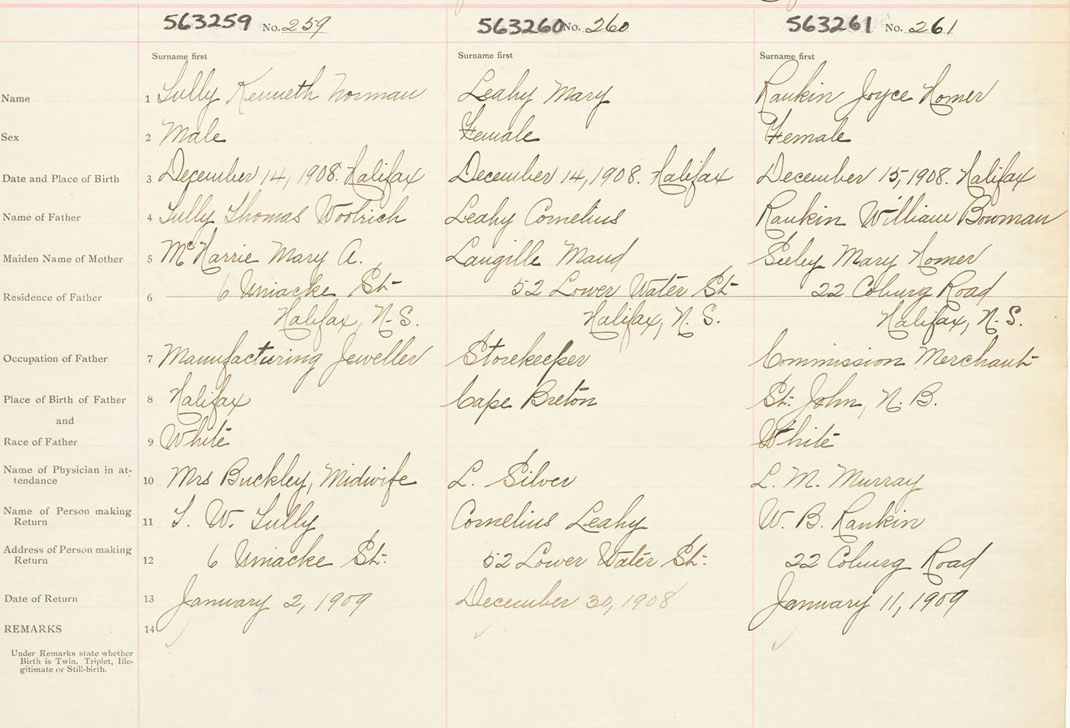 563259 No. 259 563260 No. 260 563261 No. 261
Surname first Surname first Surname first
Name 1 Tully Kenneth Norman Leahy Mary Rankin Joyce Homer
Sex 2 Male Female Female
Date and Place of Birth 3 December 14, 1908. Halifax December 14, 1908. Halifax December 15, 1908. Halifax
Name of Father 4 Tully Thomas Woolrich Leahy Cornelius Rankin William Bowman
Maiden Name of Mother 5 Mary A. Langille Maud Seeley Mary Homer
Residence of Father 6 6 Uniacke St. 52 Lower Water St. 22 Coburg Road
Halifax, N.S. Halifax, N.S. Halifax, N.S.
Occupation of Father 7 Manufacturing Jeweller Storekeeper Commission Merchant
Place of Birth of Father 8 Halifax Cape Breton St. John, N.B.
and
Race of Father 9 White White
Name of Physician in at-
tendance 10 Mrs Buckley, Midwife L. Silver L. M. Murray
Name of Person making
Return 11 T. W. Tully Cornelius Leahy W. B. Rankin
Address of Person making
Return 12 6 Uniacke St. 52 Lower Water St. 22 Coburg Road
Date of Return 13 January 2, 1909 December 30, 1908 January 11, 1909
REMARKS 14
Under Remarks state whether
Birth is Twin, Triplet, Ille-
gitimate or Still-birth.